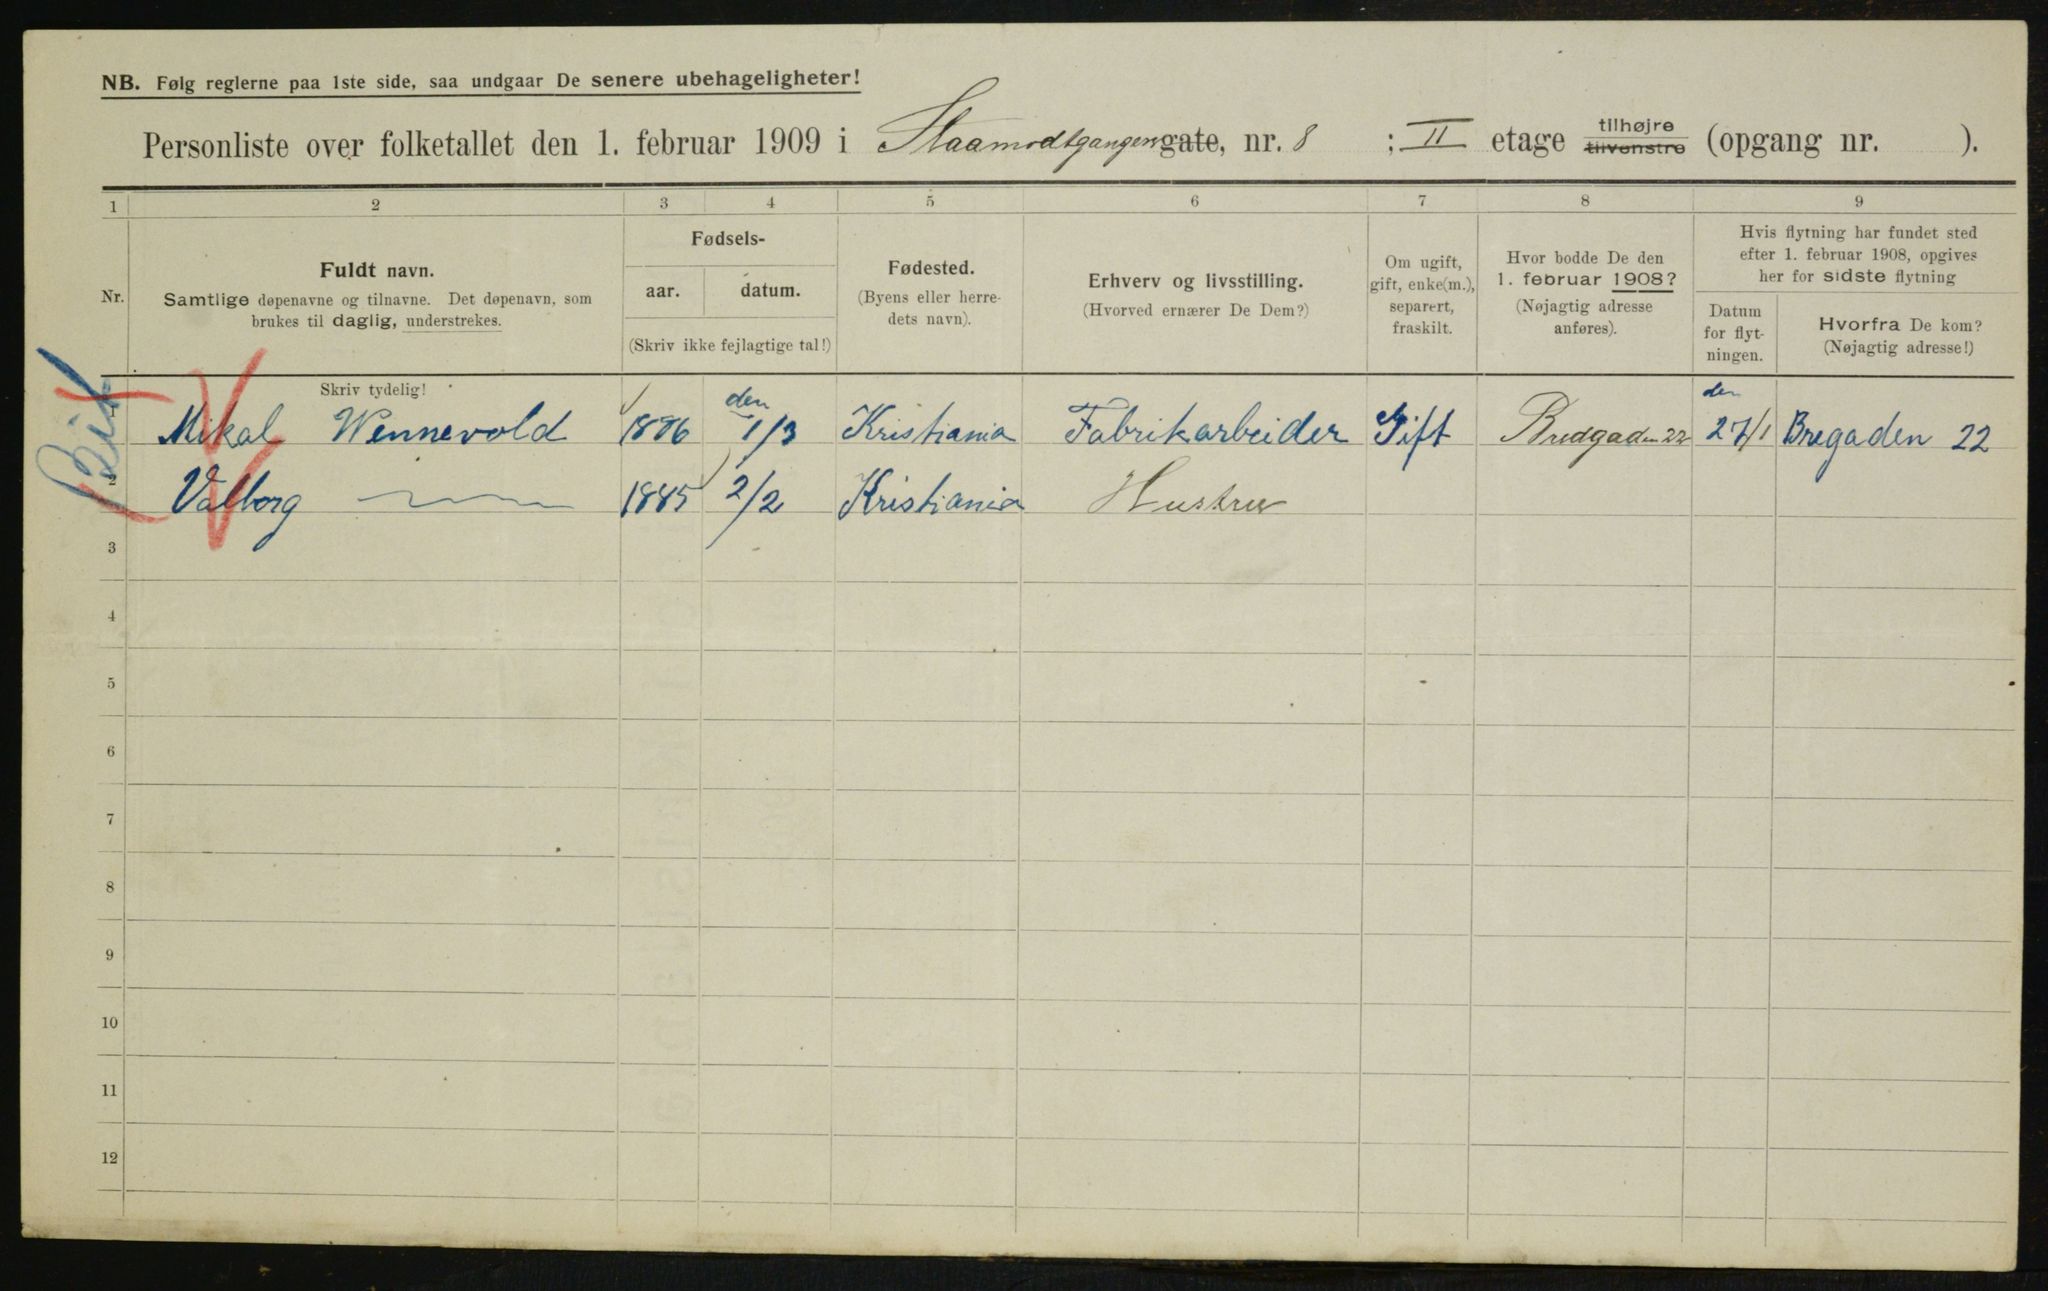 NB. Følg reglerne paa 1ste side, saa undgaar De senere ubehageligheter!
Personliste over folketallet den 1. februar 1909 i Slaamodtgangen gate, nr. 8 ; II etage tilhøjre tilvenstre (opgang nr. ).
1 2 3 4 5 6 7 8 9
Nr.
Fuldt navn.
Samtlige døpenavne og tilnavne. Det døpenavn, som
brukes til daglig, understrekes.
Fødsels-
aar. datum.
(Skriv ikke fejlagtige tal!)
Fødested.
(Byens eller herre-
dets navn).
Erhverv og livsstilling.
(Hvorved ernærer De Dem?)
Om ugift,
gift, enke(m.),
separert,
fraskilt.
Hvor bodde De den
1. februar 1908?
(Nøjagtig adresse
anføres).
Hvis flytning har fundet sted
efter 1. februar 1908, opgives
her for sidste flytning
Datum
for flyt-
ningen.
Hvorfra De kom?
(Nøjagtig adresse!)
Skriv tydelig!
1 Mikal Wennevold 1886 den 1/3 Kristiania Fabrikarbeider Gift Bredgaden 22 den 27/1 Bregaden 22
2 Valborg 1885 2/2 Kristiania Hustru
3
4
5
6
7
8
9
10
11
12